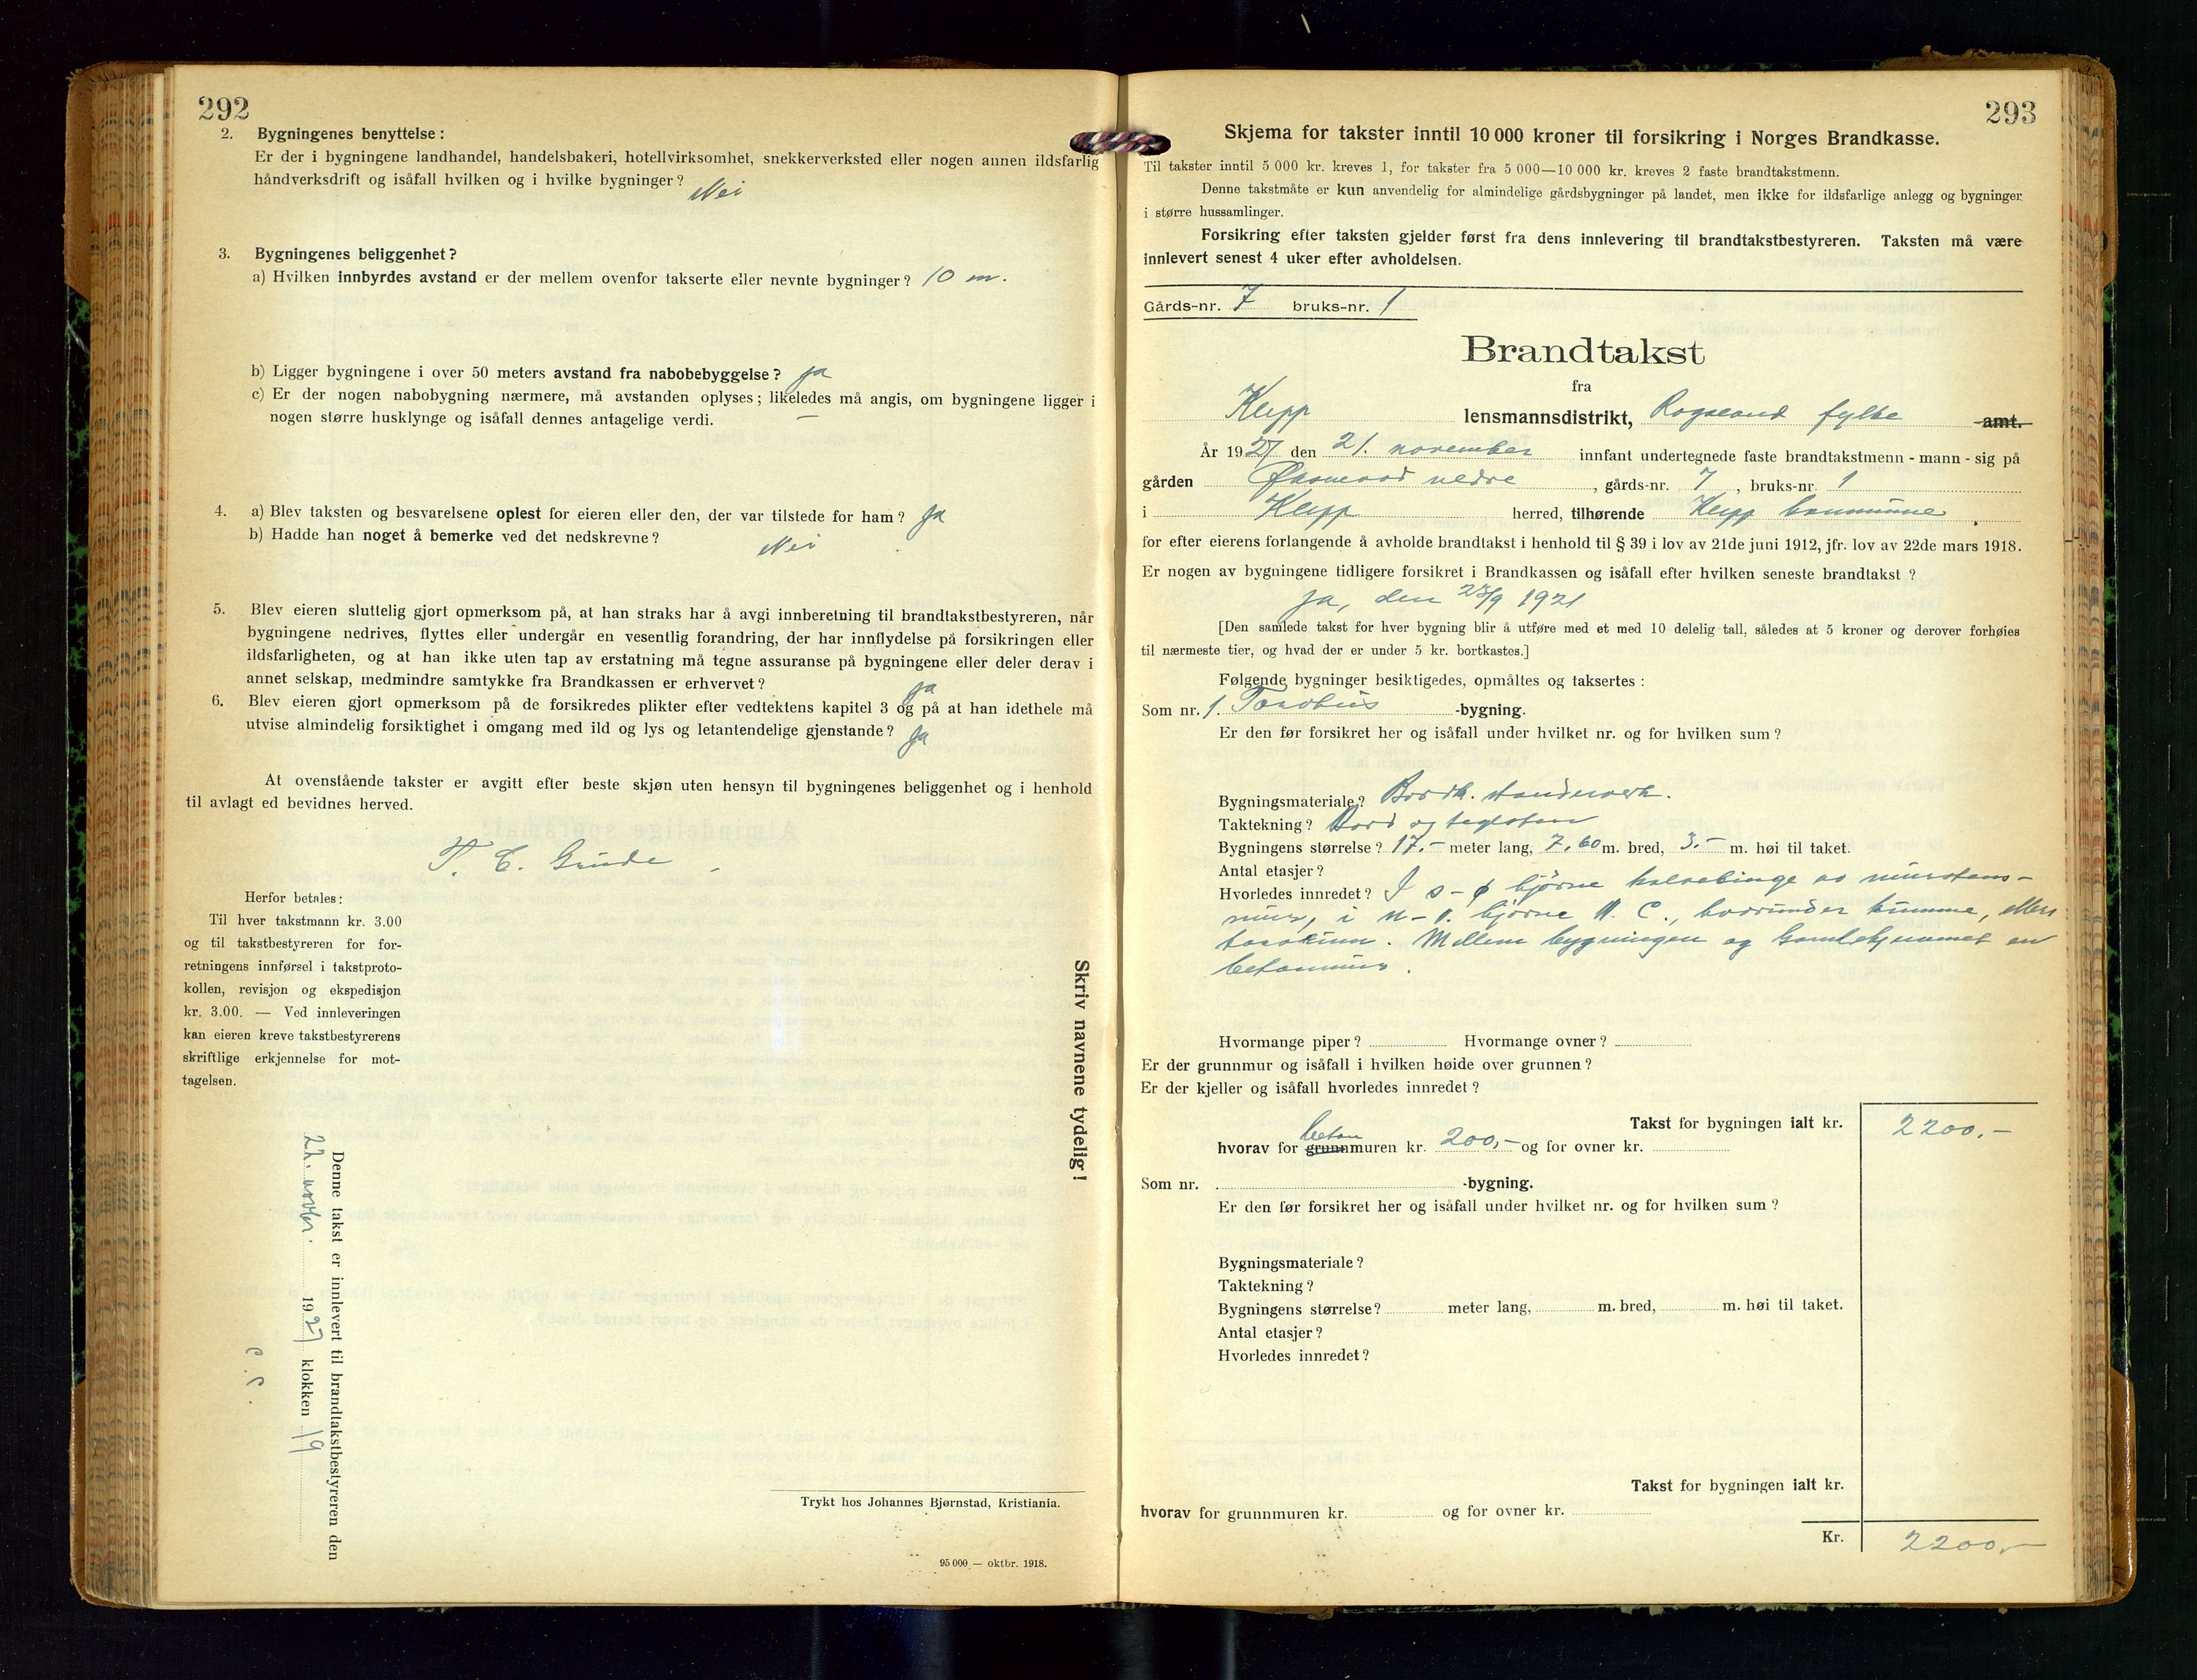 292
2. Bygningenes benyttelse:
Er der i bygningene landhandel, handelsbakeri, hotellvirksomhet, snekkerverksted eller nogen annen ildsfarlig
håndverksdrift og isåfall hvilken og i hvilke bygninger? Nei
3. Bygningenes beliggenhet?
a) Hvilken innbyrdes avstand er der mellem ovenfor takserte eller nevnte bygninger? 10 m.
b) Ligger bygningene i over 50 meters avstand fra nabobebyggelse? ja
c) Er der nogen nabobygning nærmere, må avstanden oplyses; likeledes må angis, om bygningene ligger i
nogen større husklynge og isåfall dennes antagelige verdi. —
4. a) Blev taksten og besvarelsene oplest for eieren eller den, der var tilstede for ham? Ja
b) Hadde han noget å bemerke ved det nedskrevne? Nei
5. Blev eieren sluttelig gjort opmerksom på, at han straks har å avgi innberetning til brandtakstbestyreren, når
bygningene nedrives, flyttes eller undergår en vesentlig forandring, der har innflydelse på forsikringen eller
ildsfarligheten, og at han ikke uten tap av erstatning må tegne assuranse på bygningene eller deler derav i
annet selskap, medmindre samtykke fra Brandkassen er erhvervet? ja
6. Blev eieren gjort opmerksom på de forsikredes plikter efter vedtektens kapitel 3 og på at han idethele må
utvise almindelig forsiktighet i omgang med ild og lys og letantendelige gjenstande? Ja
At ovenstående takster er avgitt efter beste skjøn uten hensyn til bygningenes beliggenhet og i henhold
til avlagt ed bevidnes herved.
T. E. Grude
Herfor betales:
Til hver takstmann kr. 3.00
og til takstbestyreren for for-
retningens innførsel i takstproto-
kollen, revisjon og ekspedisjon
kr. 3.00. — Ved innleveringen
kan eieren kreve takstbestyrerens
skriftlige erkjennelse for mot-
tagelsen.
Skriv navnene tydelig!
Denne takst er innlevert til brandtakstbestyreren den
22. novbr. 1927 klokken 19
Trykt hos Johannes Bjørnstad, Kristiania.
95 000 — oktbr. 1918.
293
Skjema for takster inntil 10 000 kroner til forsikring i Norges Brandkasse.
Til takster inntil 5 000 kr. kreves 1, for takster fra 5 000—10 000 kr. kreves 2 faste brandtakstmenn.
Denne takstmåte er kun anvendelig for almindelige gårdsbygninger på landet, men ikke for ildsfarlige anlegg og bygninger
i større hussamlinger.
Forsikring efter taksten gjelder først fra dens innlevering til brandtakstbestyreren. Taksten må være
innlevert senest 4 uker efter avholdelsen.
Gårds-nr. 7 bruks-nr. 1
Brandtakst
fra
Klepp lensmannsdistrikt, Rogaland fylke amt.
År 1927 den 21. november innfant undertegnede faste brandtakstmenn - mann - sig på
gården nedre, gårds-nr. 7, bruks-nr. 1
i Klepp herred, tilhørende Klepp kommune.
for efter eierens forlangende å avholde brandtakst i henhold til § 39 i lov av 21de juni 1912, jfr. lov av 22de mars 1918.
Er nogen av bygningene tidligere forsikret i Brandkassen og isåfall efter hvilken seneste brandtakst?
Ja, den 23/9 1921
[Den samlede takst for hver bygning blir å utføre med et med 10 delelig tall, således at 5 kroner og derover forhøies
til nærmeste tier, og hvad der er under 5 kr. bortkastes.]
Følgende bygninger besiktigedes, opmåltes og taksertes:
Som nr. 1. Torvhus -bygning.
Er den før forsikret her og isåfall under hvilket nr. og for hvilken sum?
Bygningsmateriale? Bordk. stenderverk.
Taktekning? Bord og teglsten
Bygningens størrelse? 17.- meter lang, 7.60 m. bred, 3.- m. høi til taket.
Antal etasjer?
Hvorledes innredet? I s-ø hjørne av murstens-
mur, i n-v. hjørne W. C., hvorunder kumme, ellers
torvrum. Mellem bygningen og en
betonmur.
Hvormange piper? Hvormange ovner?
Er der grunnmur og isåfall i hvilken høide over grunnen?
Er der kjeller og isåfall hvorledes innredet?
Takst for bygningen ialt kr. 2200.-
beton
hvorav for grunnmuren kr. 200,- og for ovner kr.
Som nr. -bygning.
Er den før forsikret her og isåfall under hvilket nr. og for hvilken sum?
Bygningsmateriale?
Taktekning?
Bygningens størrelse? meter lang, m. bred, m. høi til taket.
Antal etasjer?
Hvorledes innredet?
Takst for bygningen ialt kr.
hvorav for grunnmuren kr. og for ovner kr.
Kr. 2200,-